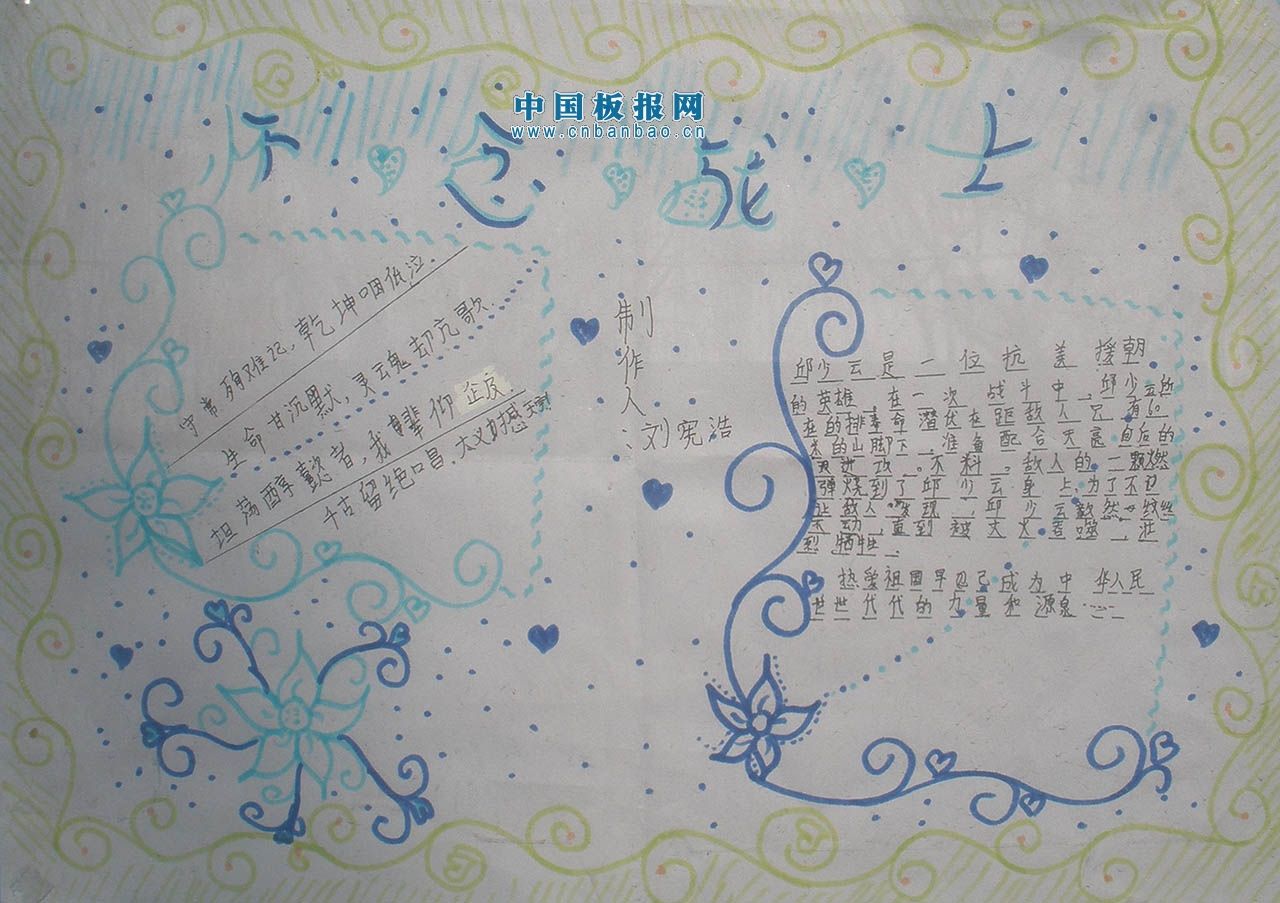 中国板报网
www.cnbanbao.cn
怀念战士
守常殉难记，乾坤咽低泣．
生命甘沉默，灵云魂却亢歌．
坦荡醇懿者，我辈仰企及
千古留绝唱，大义撼天
制作人：刘宪浩
邱少云是一位抗美援朝
的英雄，在一次战斗中，邱少云所
在的排奉命潜伏在距敌人只有60
米的山脚下，准备配合天底自后的
进攻。不料。敌人的一颗燃
弹烧到了邱少云身上，为了不
让敌人发现，邱少云毅然一纹丝
不动，直到被大火吞噬，壮
烈牺牲、
热爱祖国早已己成为中华人民
世世代代的力量和源泉……